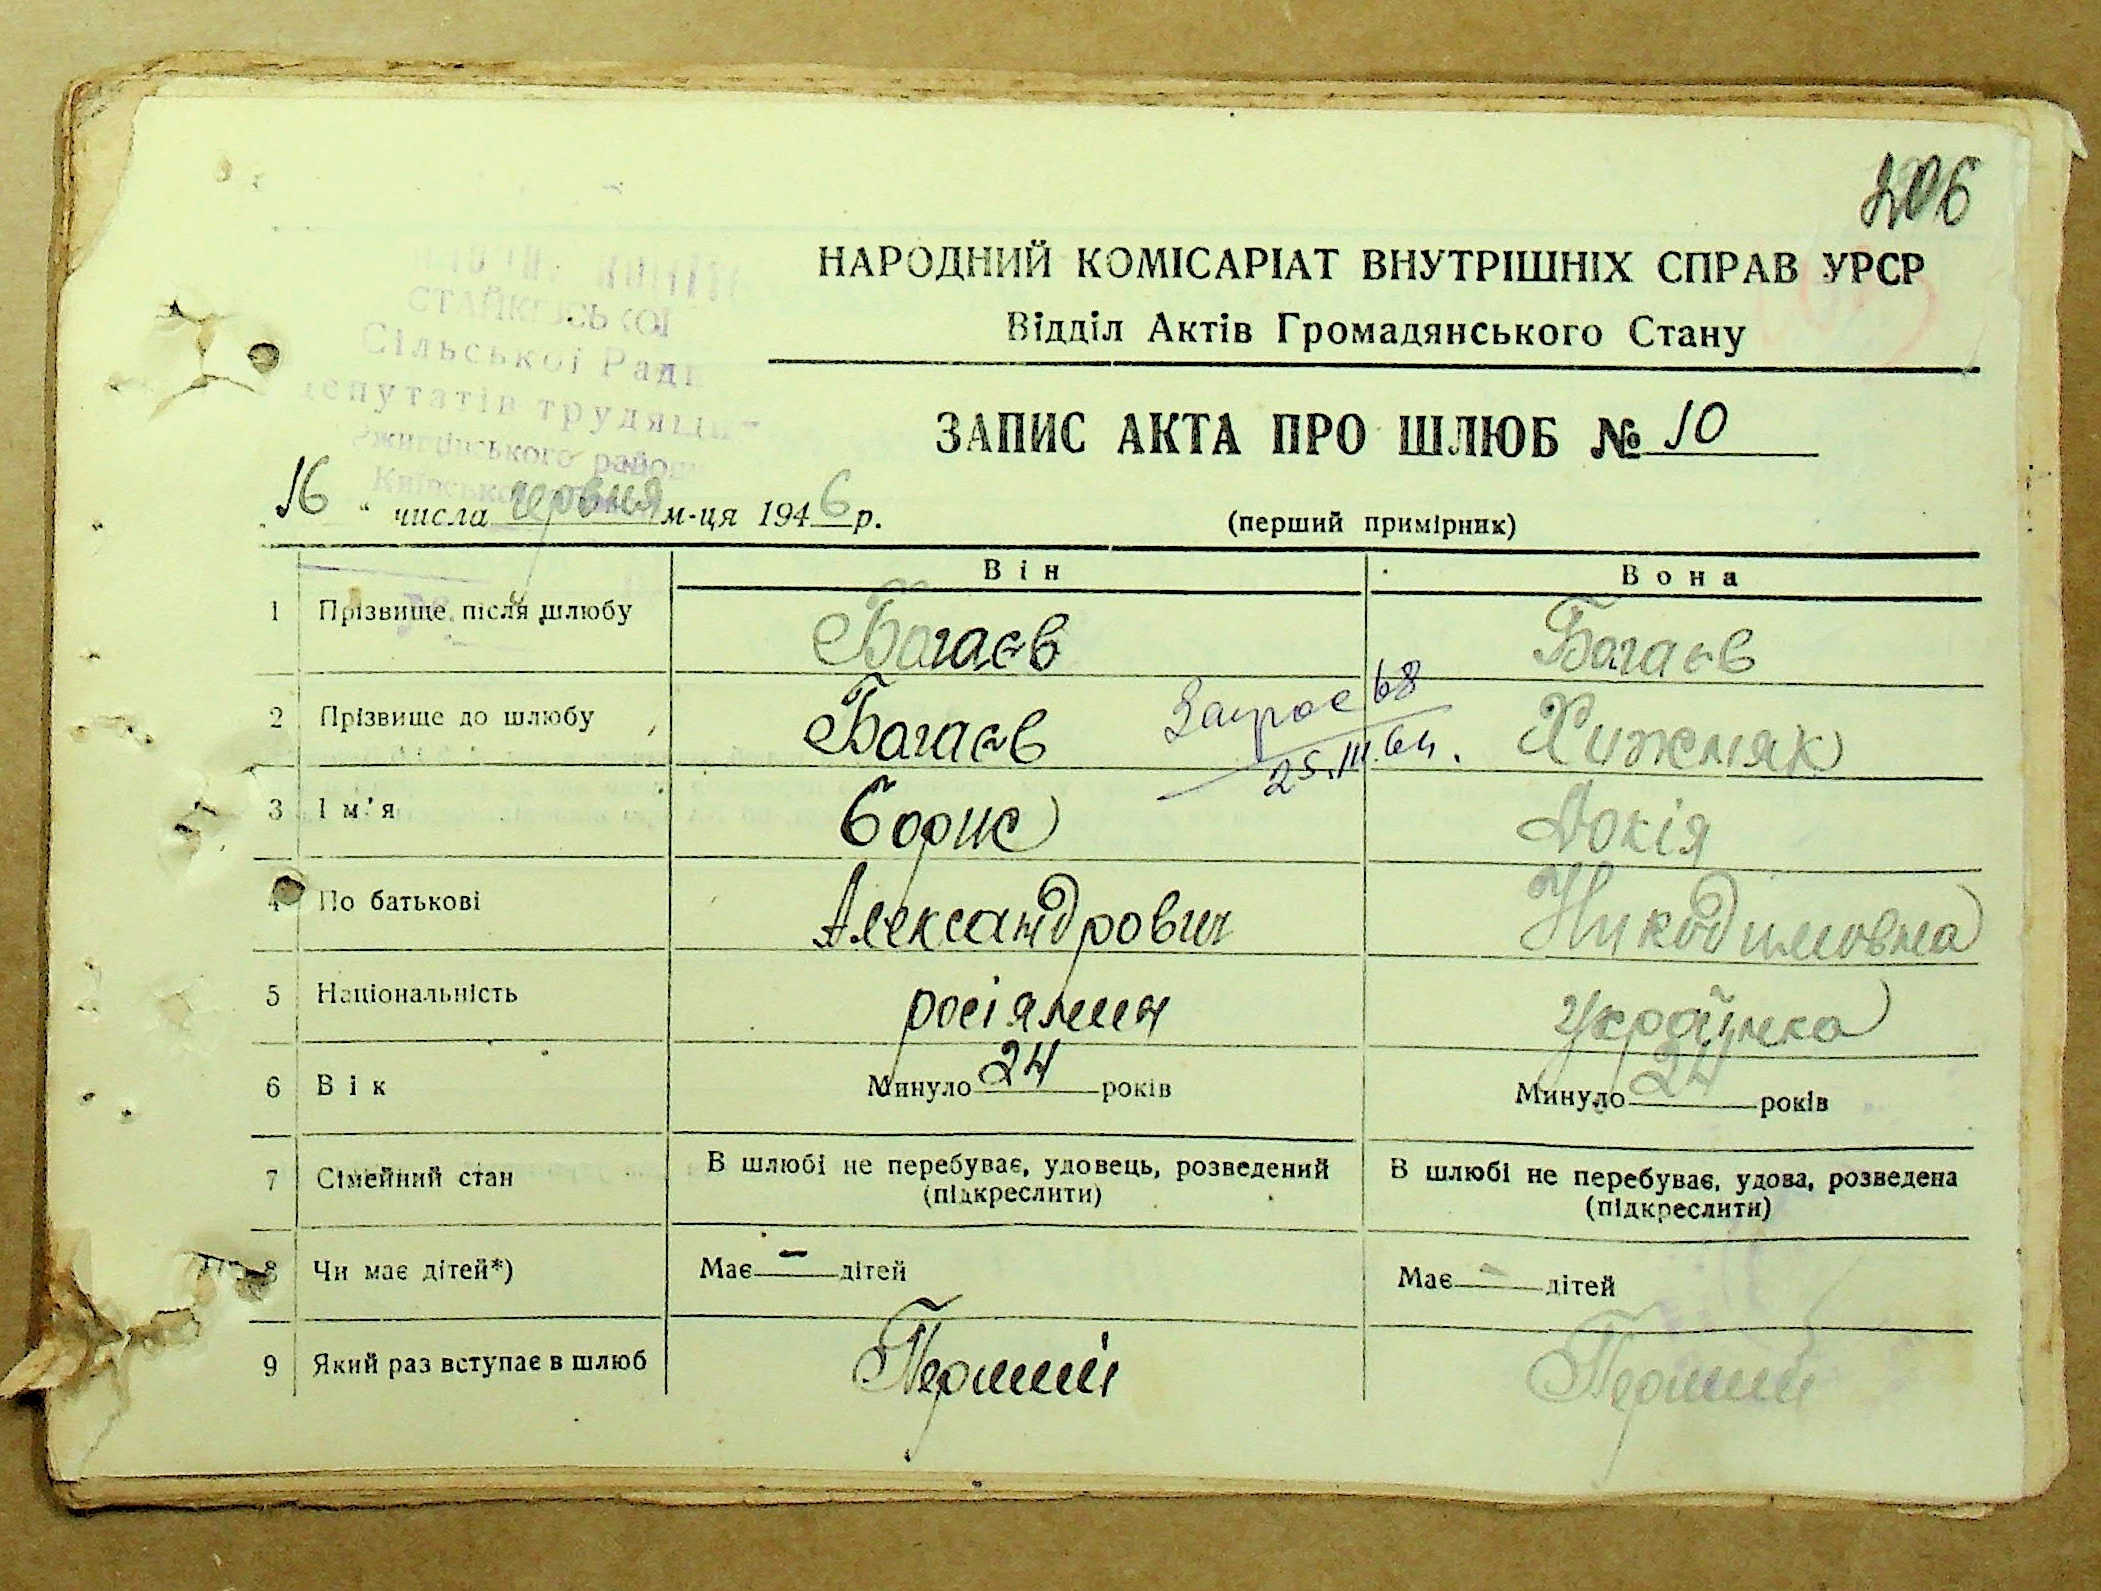 206
НАРОДНИЙ КОМІСАРІАТ ВНУТРІШНІХ СПРАВ УРСР
Відділ Актів Громадянського Стану
СТАЙКІВСЬКОЇ
Сільської Ради
депутатів трудящих
Ржищівського району
Київської
ЗАПИС АКТА ПРО ШЛЮБ № 10
16 " числа червня м-ця 1946 р.
(перший примірник)
Він Вона
1 Прізвище після шлюбу Багаєв Багаєв
2 Прізвище до шлюбу Багаєв Хижняк
Запрос 68
25.III.64.
3 Ім'я Борис Докія
4 По батькові Александрович Никодимовна
5 Національність росіянин Українка
6 Вік Минуло 24 років Минуло 24 років
7 Сімейний стан В шлюбі не перебуває, удовець, розведений (підкреслити) В шлюбі не перебуває, удова, розведена (підкреслити)
8 Чи має дітей*) Має — дітей Має - дітей
9 Який раз вступає в шлюб Перший Перший